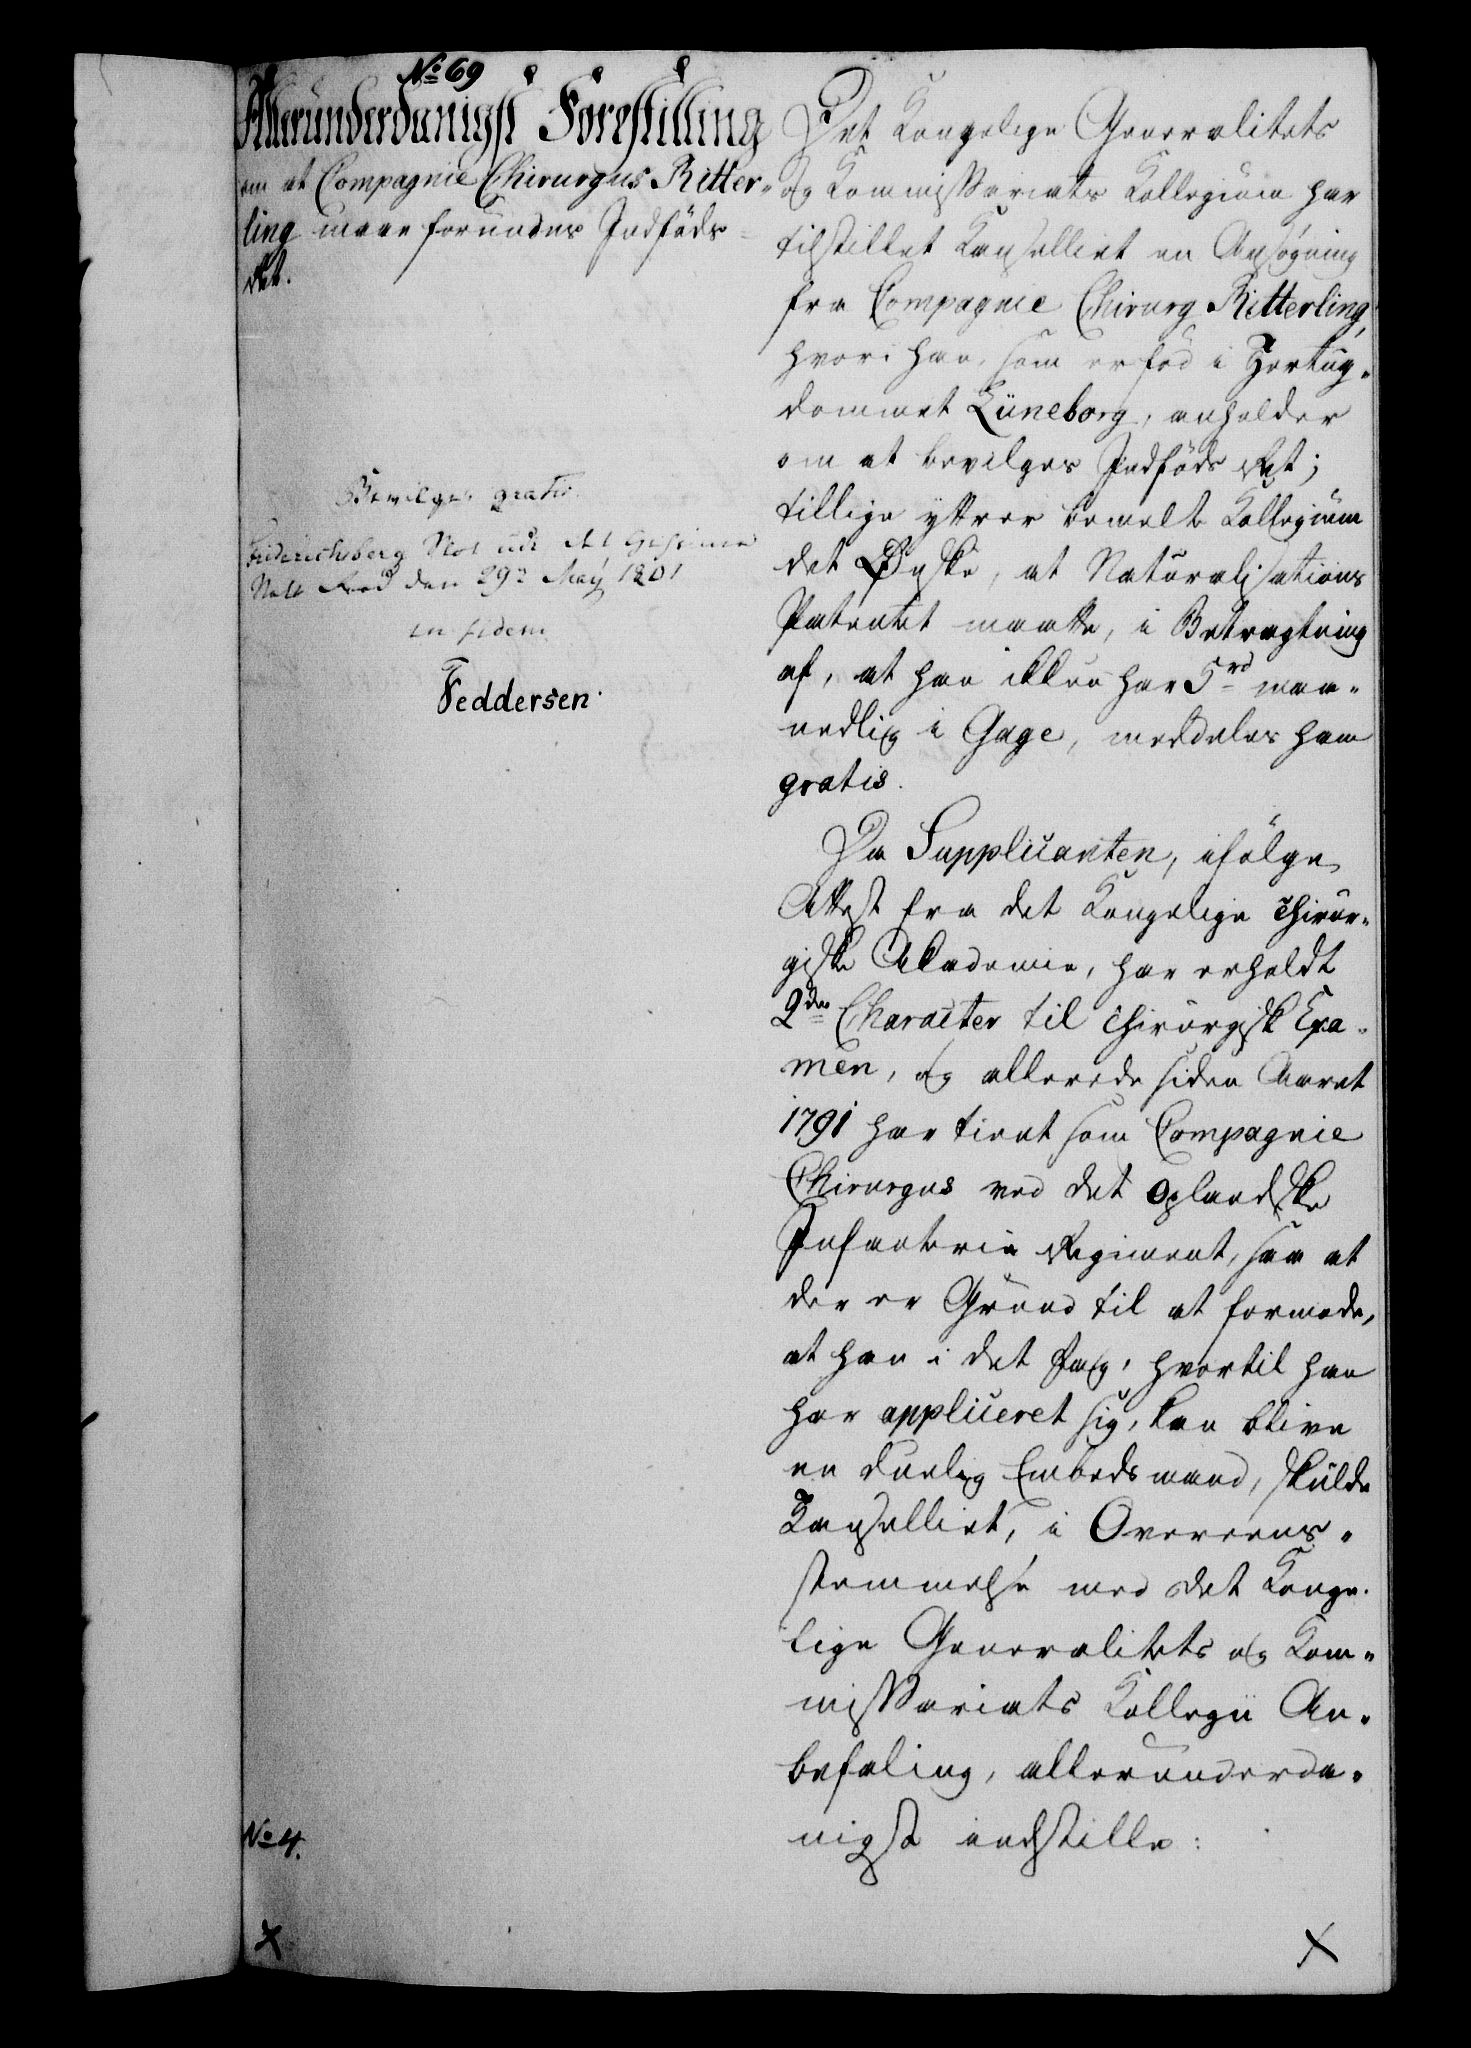 No 69
Allerunderdanigst Forestilling
om at Compagnie Chirurgus Ritter-
ling maae forundes Indføds-
Ret.
Bevilges gratis.
Friderichsberg Slot udi det Geheime
Stats Raad den 29de Maÿ 1801
in fidem
Feddersen.
Det Kongelige Generalitets
og Kommissariats Kollegium har
tilstillet Kanselliet en Ansøgning
fra Compagnie Chirurg Ritterling,
hvori han, som er fød i Hertug-
dømmet Lüneborg, anholder
om at bevilges Indføds Ret;
tillige yttrer bemelte Kollegium
det Ønske, at Naturalisations
Patentet maatte, i Betragtning
af, at han ikkun har 5rd maa-
nedlig i Gage, meddeles ham
gratis.
Da Supplicanten, ifølge
Attest fra det Kongelige Chirur-
giske Akademie, har erholdt
2den Character til Chirurgisk Exa-
men, og allerede siden Aaret
1791 har tient som Compagnie
Chirurgus ved det Oplandske
Infanterie Regiment, saa at
der er Grund til at formode,
at han i det Fag, hvortil han
har appliceret sig, kan blive
en duelig Embedsmand, skulde
Kanselliet, i Overeens-
stemmelse med det Konge-
lige Generalitets og Kom-
missariats Kollegii An-
befaling, allerunderda-
nigst indstille:
No 4.